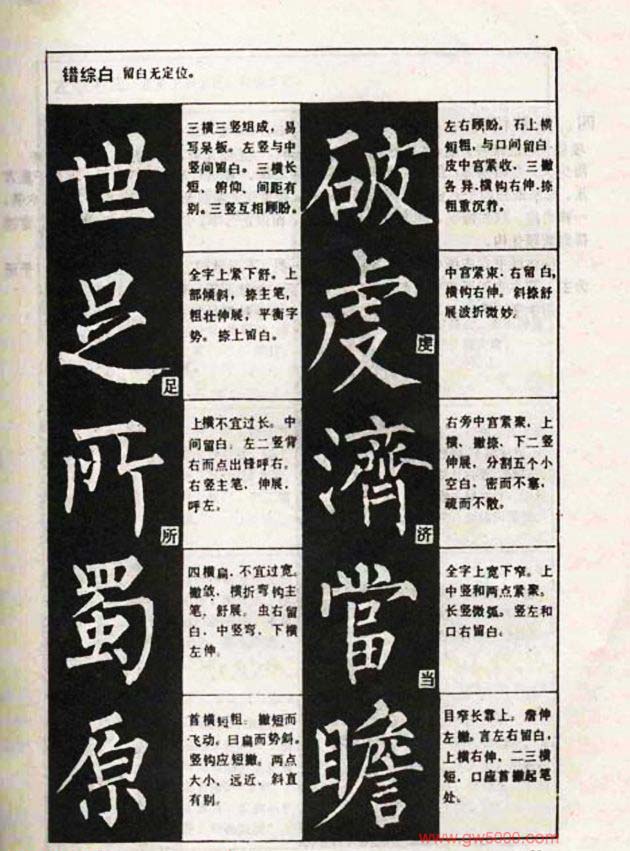 错综白 留白无定位。
破
左右顾盼。石上横
短粗,与口间留白
皮中宫紧收,三撇
各异,横钩右伸,捺
粗重沉着。
虔
虔
中宫紧束,右留白,
横钩右伸。斜捺舒
展波折微妙。
濟
济
右旁中宫紧聚,上
横、撇捺、下二竖
伸展,分割五个小
空白,密而不塞,
疏而不散。
當
当
全字上宽下窄。上
中竖和两点紧聚。
长竖微弧。竖左和
口右留白。
瞻
目窄长靠上。詹伸
左撇。言左右留白,
上横右伸,二三横
短,口应首撇起笔
处。
世
三横三竖组成,易
写呆板。左竖与中
竖间留白。三横长
短、俯仰、间距有
别。三竖互相顾盼。
足
足
全字上紧下舒。上
部倾斜,捺主笔,
粗壮伸展,平衡字
势。捺上留白。
所
所
上横不宜过长。中
间留白。左二竖背
右而点出锋呼右。
右竖主笔,伸展,
呼左。
蜀
四横扁,不宜过宽。
撇敛,横折弯钩主
笔,舒展。虫右留
白,中竖弯,下横
左伸。
原
首横短粗;撇短而
飞动。曰扁而势斜。
竖钩应短撇。两点
大小、远近、斜直
有别。